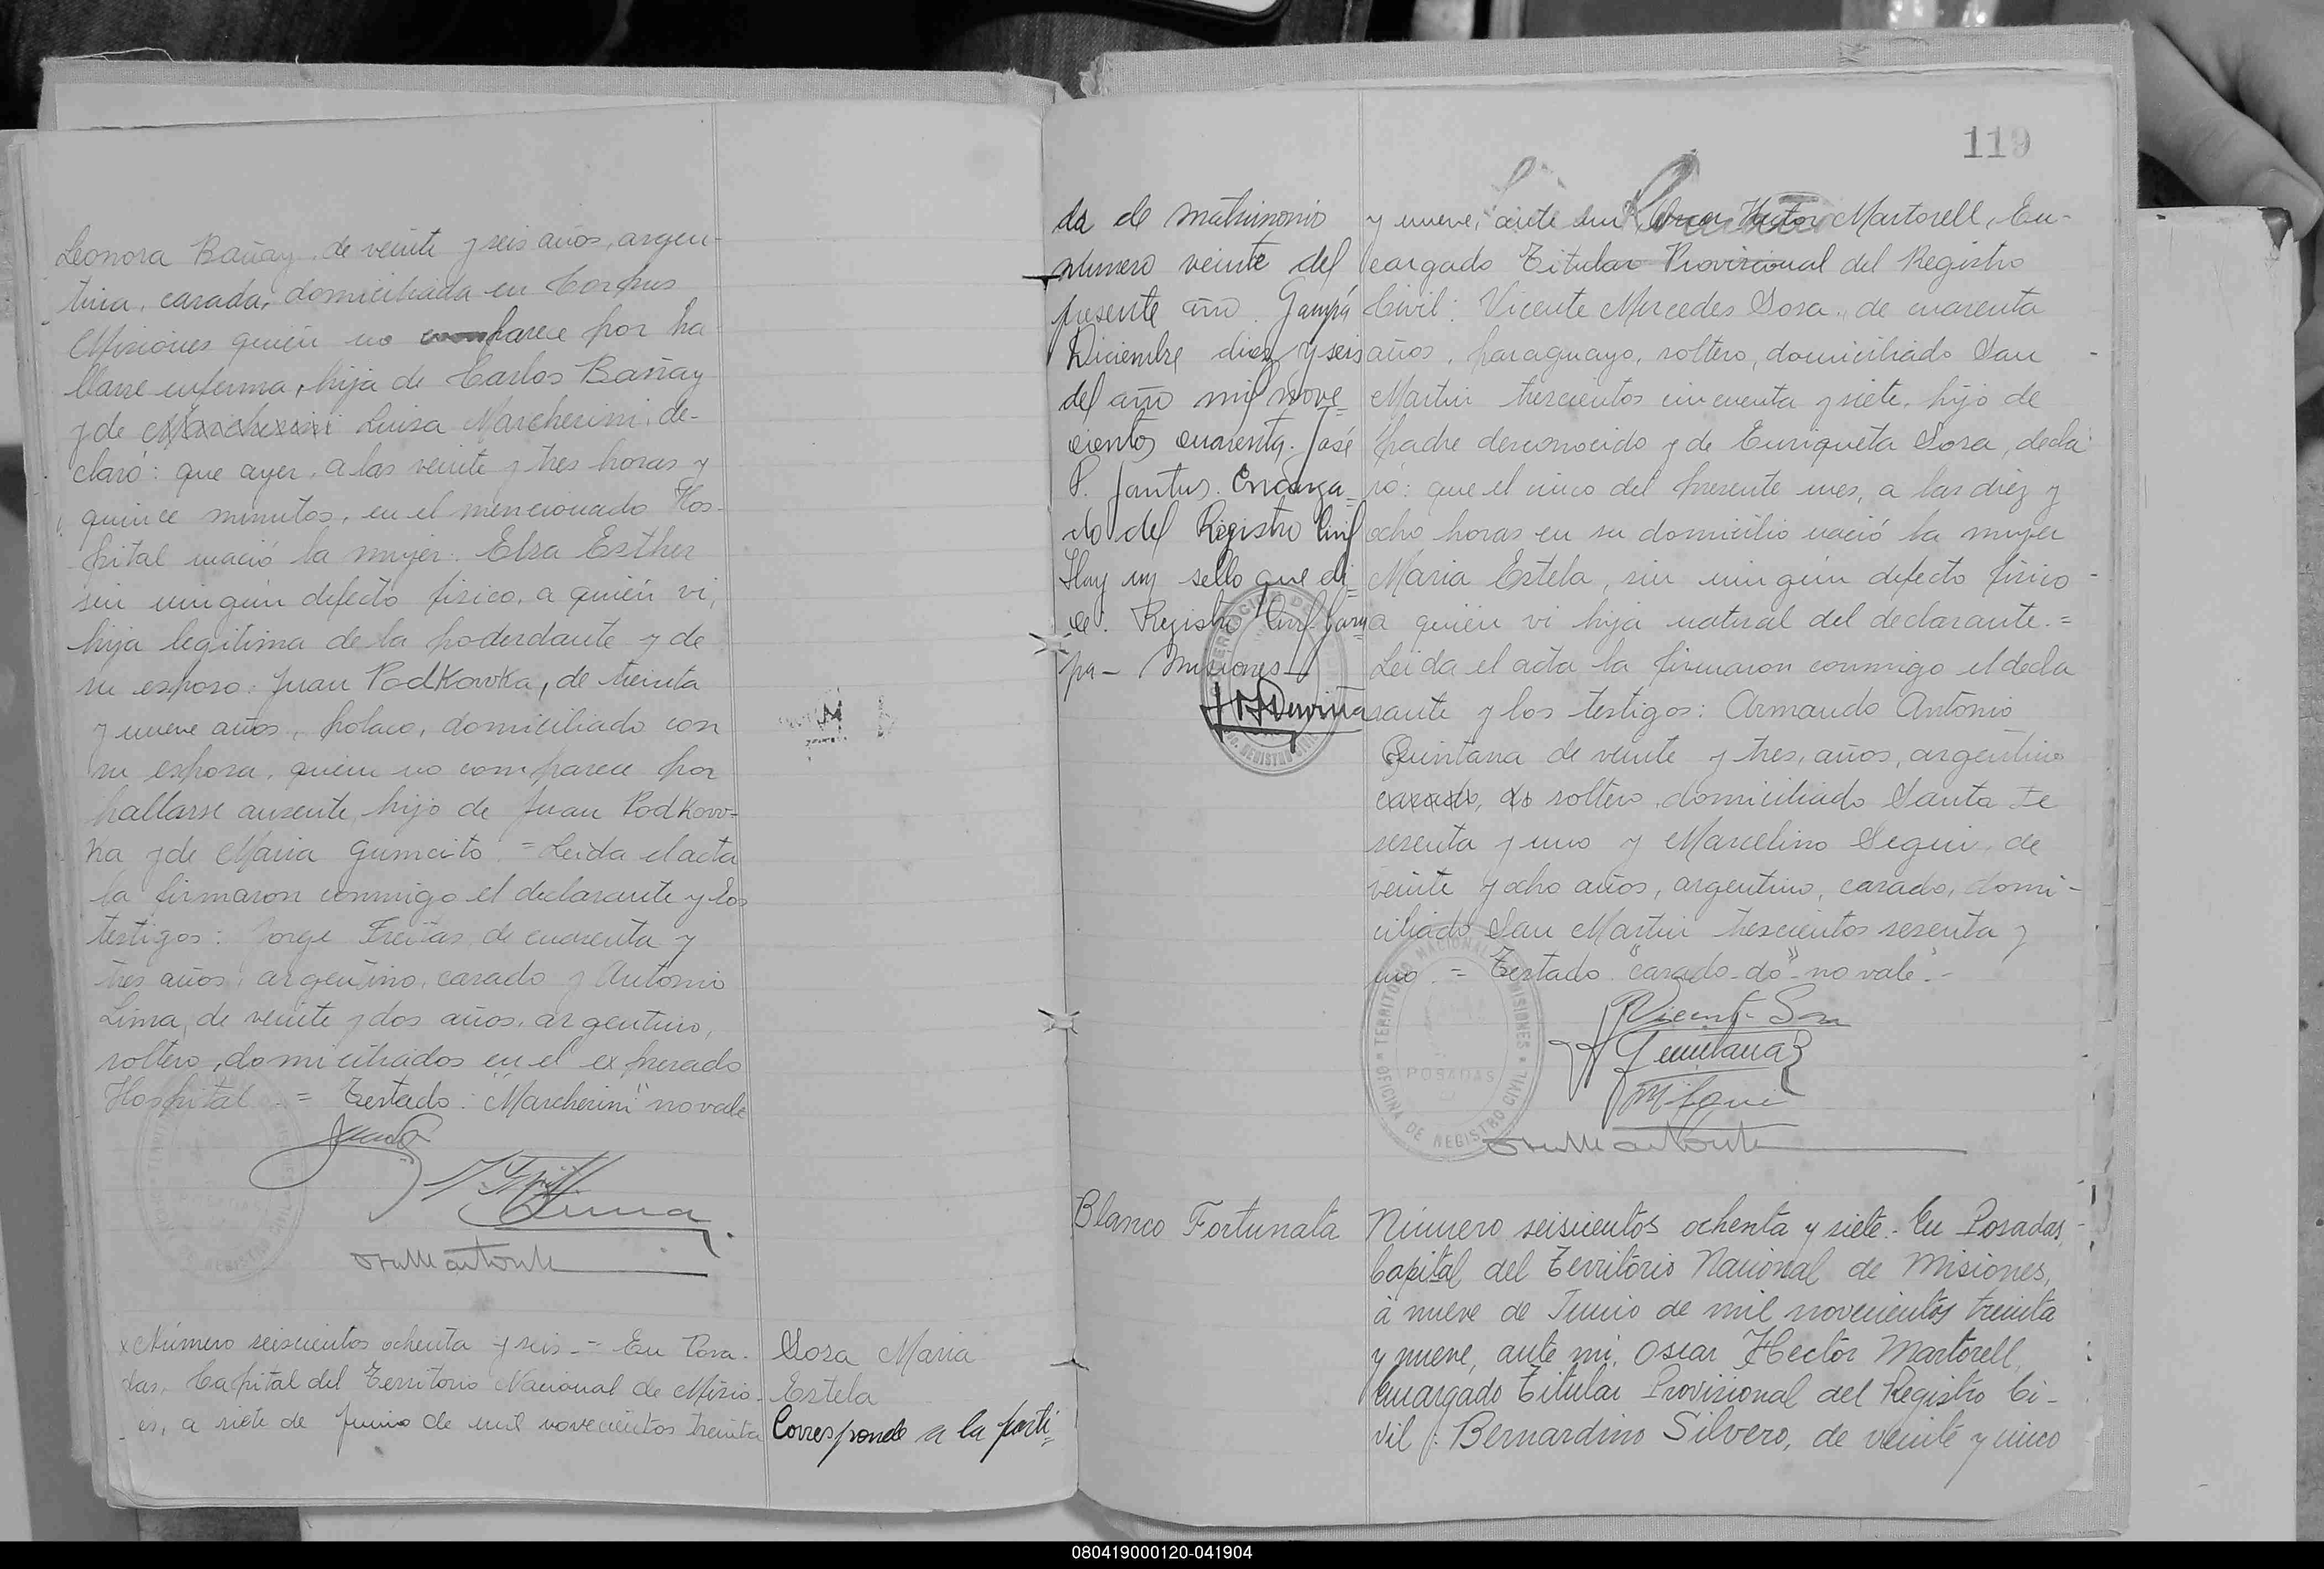 Leonora Bañay, de veinte y seis años, argen-
tina, casada, domiciliada en Corpus
Misiones quién no comparece por ha
llarse enferma, hija de Carlos Bañay
y de Marcherini Luisa Marcherini, de-
claró: que ayer, a las veinte y tres horas y
quince minutos, en el mencionado Hos-
pital nació la mujer: Elsa Esther
sin ningún defecto físico, a quién vi,
hija legítima de la poderdante y de
su esposo: Juan Podkowka, de treinta
y nueve años, polaco, domiciliado con
su esposa, quien no comparece por
hallarse ausente, hijo de Juan Podkow-
ka y de Maria Gumcito. = Leida el acta
la firmaron conmigo el declarante y los
testigos: Jorge Freitas, de cuarenta y
tres años, argentino, casado y Antonio
Lima, de veinte y dos años, argentino,
soltero, domiciliados en el expresado
Hospital. = Testado: "Marcherini" no vale
Lima
x Número seiscientos ochenta y seis. = En Posa-
das, Capital del Territorio Nacional de Misio-
es, a siete de Junio de mil novecientos treinta
Sosa Maria
Estela
Corresponde a la parti-
119
da de matrimonio
número veinte del
presente año. Garupá
Diciembre diez y seis
del año mil nove-
cientos cuarenta. José
P. Santus. Encarga-
do del Registro Civil
Hay un sello que di-
ce: Registro Civil Garu-
pa - Misiones
y nueve, ante mi, Oscar Hector Martorell, En-
cargado Titular Provisional del Registro
Civil: Vicente Mercedes Sosa, de cuarenta
años, paraguayo, soltero, domiciliado San
Martin trescientos cincuenta y siete, hijo de
padre desconocido y de Enriqueta Sosa, decla-
ró: que el cinco del presente mes, a las diez y
ocho horas en su domicilio nació la mujer
Maria Estela, sin ningún defecto físico
a quién vi hija natural del declarante. =
Leida el acta la firmaron conmigo el decla
rante y los testigos: Armando Antonio
Quintana de veinte y tres, años, argentino
casado, do soltero, domiciliado Santa Fe
sesenta y uno y Marcelino Segui, de
veinte y ocho años, argentino, casado, domi-
ciliado San Martin trescientos sesenta y
uno. = Testado "casado-do" - no vale. -
TERRITORIO NACIONAL MISIONES
POSADAS
OFICINA DE REGISTRO CIVIL
Vicente Sosa
Quintana
M Segui
Blanco Fortunata
Número seiscientos ochenta y siete. - En Posadas,
Capital del Territorio Nacional de Misiones,
a nueve de Junio de mil novecientos treinta
y nueve, ante mi, Oscar Hector Martorell,
Encargado Titular Provisional del Registro Ci-
vil: Bernardino Silvero, de veinte y cinco
080419000120-041904